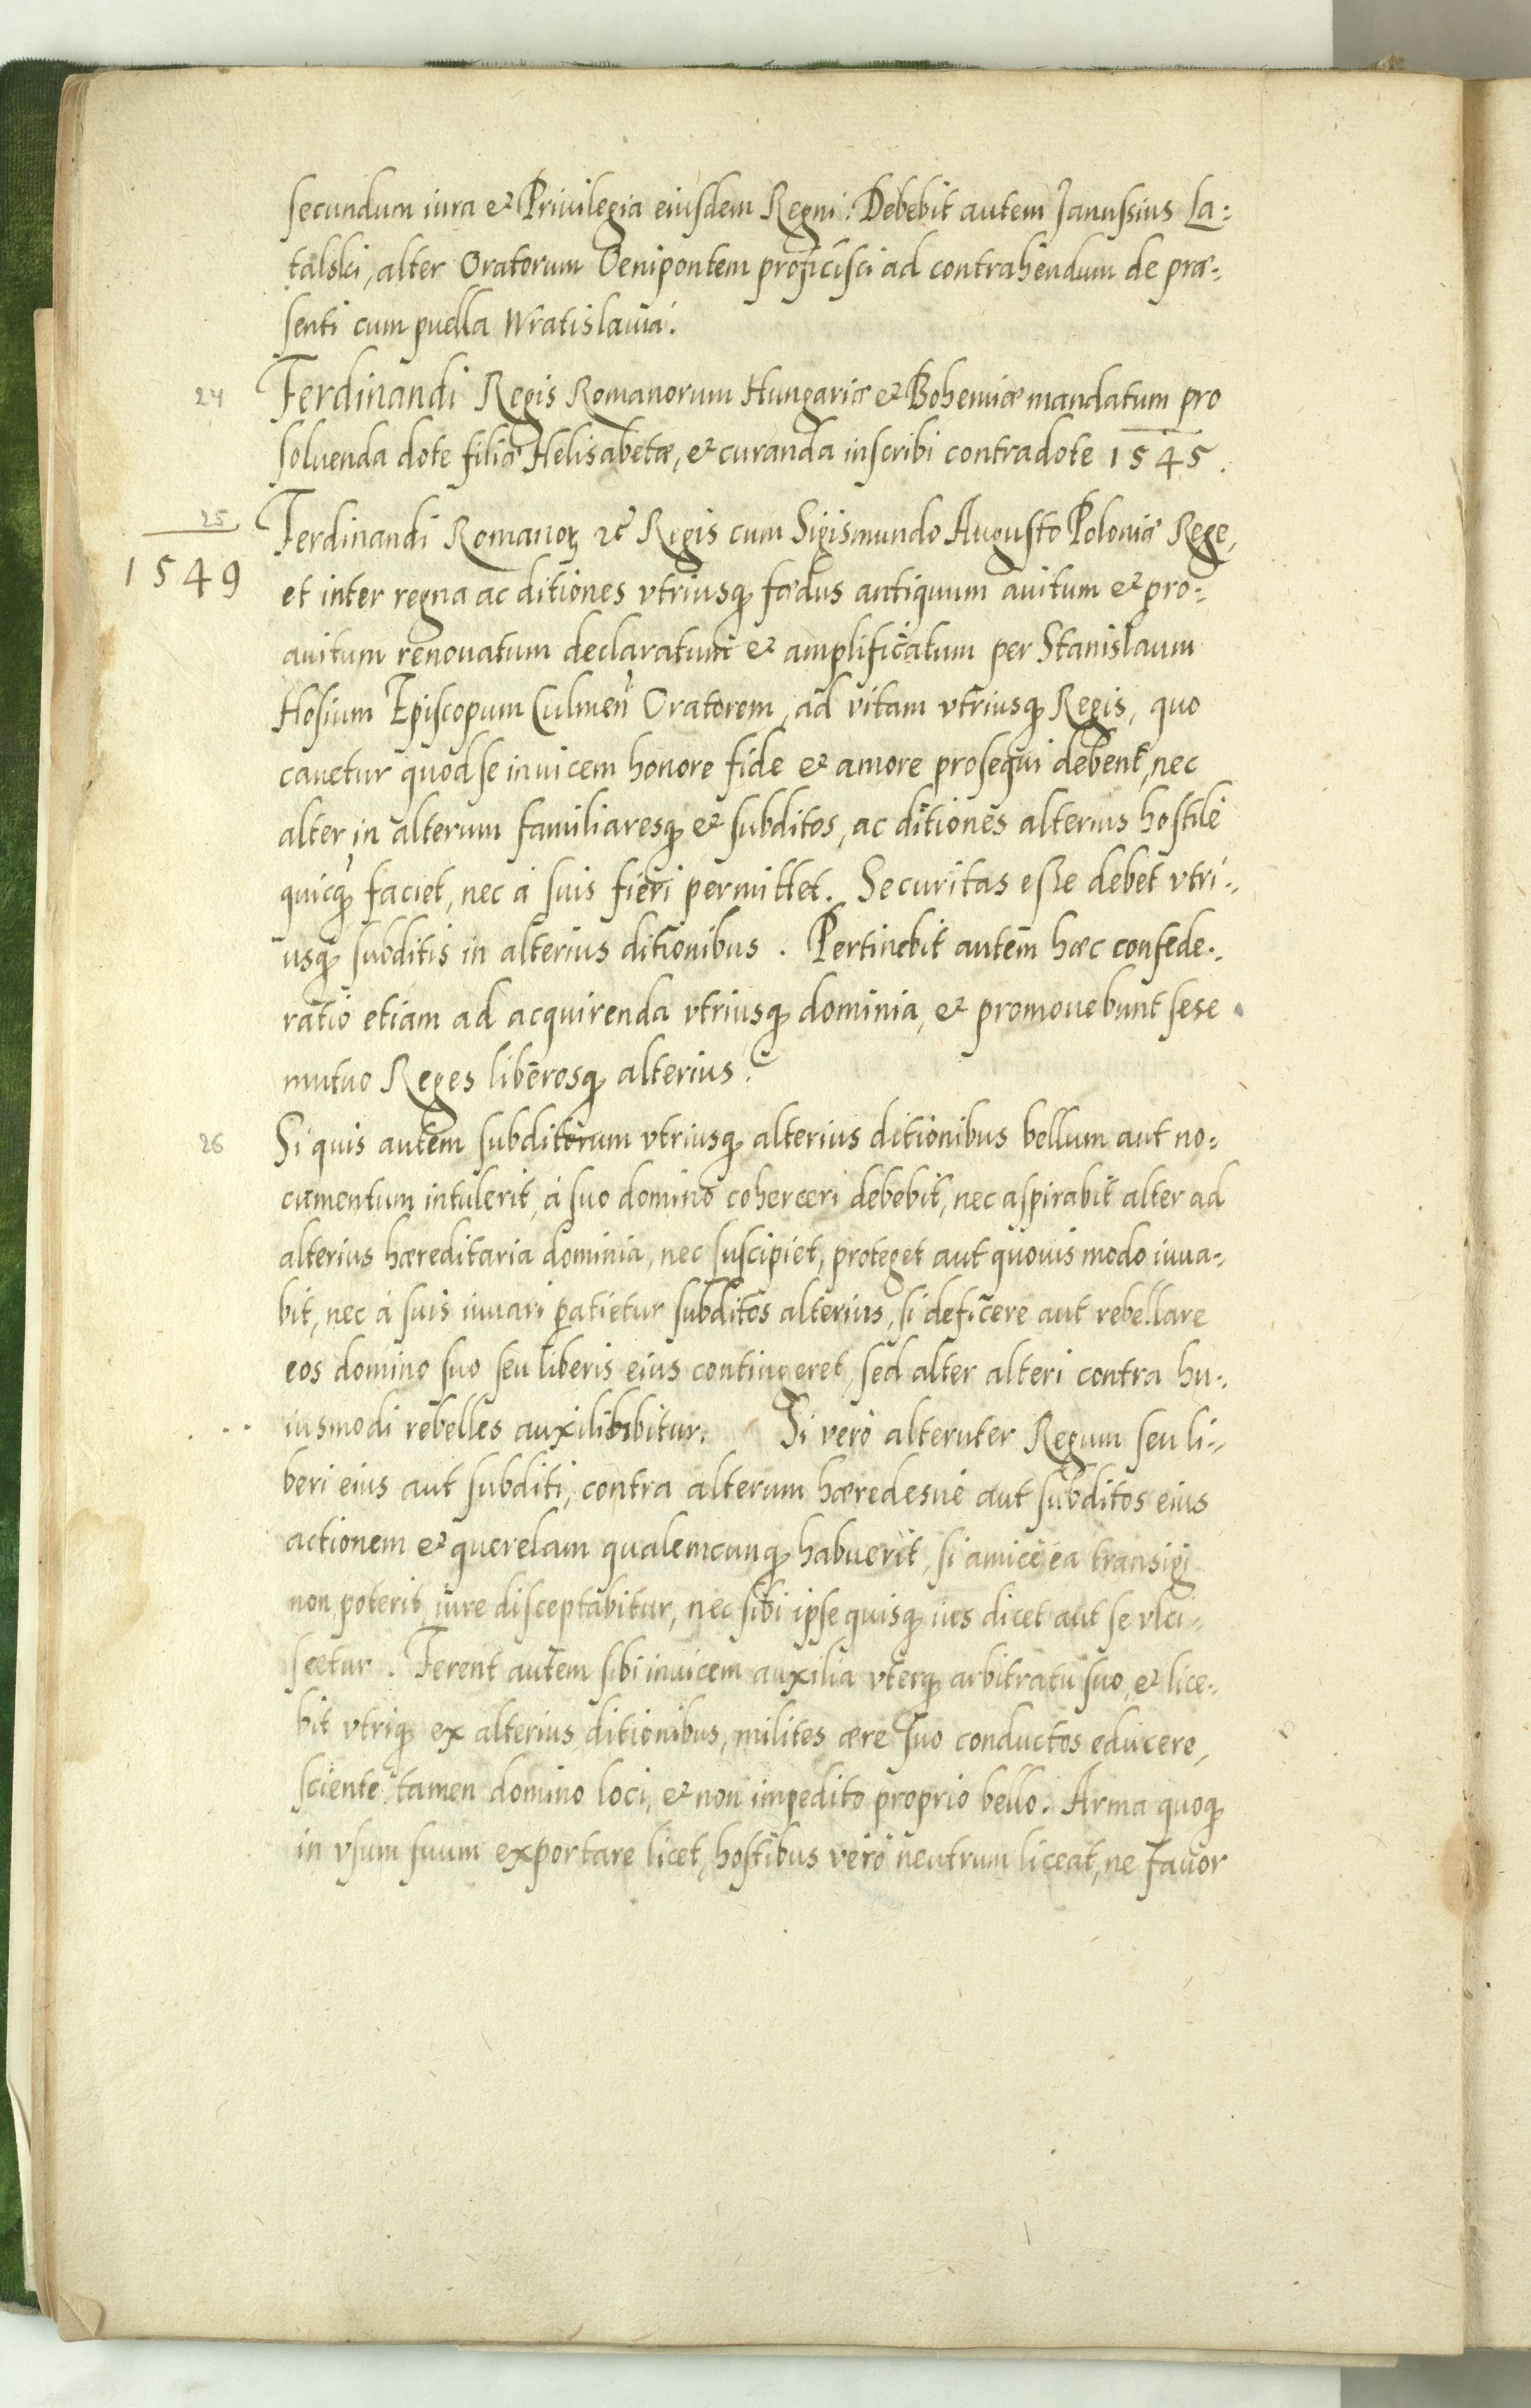 secundum iura et Privilegia eiusdem Regni. Debebit autem Janussius La-
talski, alter Oratorum Oenipontem proficisci ad contrahendum de præ-
senti cum puella Wratislauiá.
24 Ferdinandi Regis Romanorum Hungariæ et Bohemiæ mandatum pro
soluenda dote filiæ Helisabetæ, et curanda inscribi contradote 1545.
25 Ferdinandi Romanoꝝ ꝛc Regis cum Sigismundo Augusto Poloniæ Rege,
1549
et inter regna ac ditiones vtriusqꝫ fœdus antiquum auitum et pro-
auitum renouatum declaratum et amplificatum per Stanislaum
Hosium Episcopum Culmeñ Oratorem, ad vitam vtriusqꝫ Regis, quo
cauetur quod se inuicem honore fide et amore prosequi debent, nec
alter in alterum familiaresqꝫ et subditos, ac ditiones alterius hostile
quicqꝫ faciet, nec á suis fieri permittet. Securitas esse debet vtri-
usqꝫ subditis in alterius ditionibus. Pertinebit autem hæc confede-
ratio etiam ad acquirenda vtriusqꝫ dominia, et promouebunt sese
mutuo Reges liberosqꝫ alterius.
26 Si quis autem subditorum vtriusqꝫ alterius ditionibus bellum aut no-
cumentum intulerit, á suo domino coherceri debebit, nec aspirabit alter ad
alterius hæreditaria dominia, nec suscipiet, proteget aut quouis modo iuua-
bit, nec á suis iuuari patietur subditos alterius, si deficere aut rebellare
eos domino suo seu liberis eius contingeret, sed alter alteri contra hu-
iusmodi rebelles auxiliabitur. Si veró alteruter Regum seu li-
beri eius aut subditi, contra alterum hæredesué aut subditos eius
actionem et querelam qualemcunqꝫ habuerit, si amicè ea transigi
non poterit, iure disceptabitur, nec sibi ipse quisqꝫ ius dicet aut se vlci-
scetur. Ferent autem sibi inuicem auxilia vterqꝫ arbitratu suo, et lice-
bit vtriqꝫ ex alterius ditionibus, milites ære suo conductos educere,
sciente tamen domino loci, et non impedito proprio bello. Arma quoqꝫ
in vsum suum exportare licet, hostibus veró neutrum liceat, ne fauor